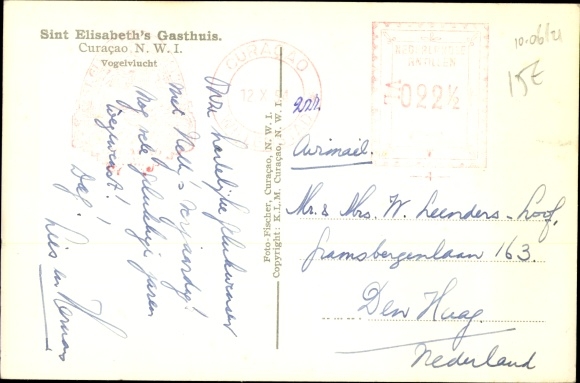 Sint Elisabeth's Gasthuis.
Curaçao N. W. I.
Vogelvlucht
Onze hartelijke gelukwensen
met Nell's verjaardag!
Nog vele gelukkige jaren
toegewenst!
Dag!
Lies en Herman
Foto-Fischer, Curaçao, N. W. I.
Copyright: K.L.M. Curaçao, N. W. I.
CURAÇAO
12 X 51
NEDERLANDSE
ANTILLEN
022½
10.06/21
15E
Airmail.
Mr. & Mrs. W. Leenders-Loof,
Gramsbergenlaan 163.
Den Haag.
Nederland